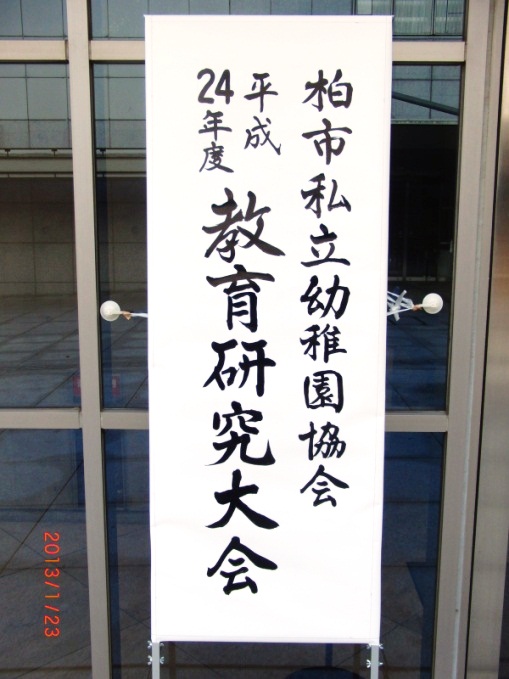 柏市私立幼稚園協会
平成
24年度
教育研究大会
2013/1/23